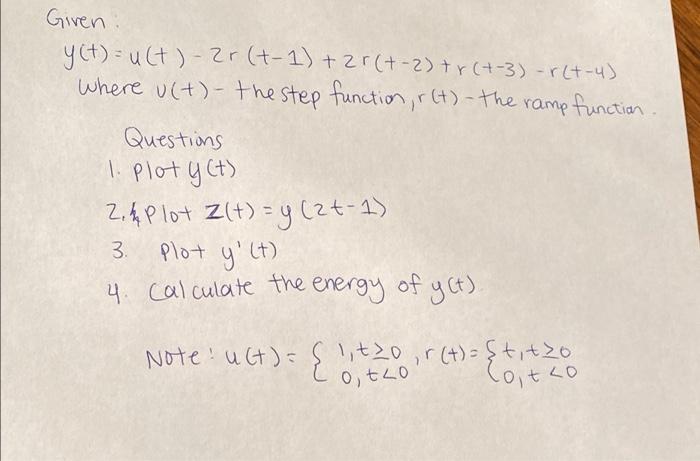 Given:
y(t) = u(t) - 2r(t-1) + 2r(t-2) + r(t-3) - r(t-4)
where u(t) - the step function, r(t) - the ramp function.
Questions
1. Plot y(t)
2. Plot z(t) = y(2t-1)
3. Plot y'(t)
4. Calculate the energy of y(t).
Note: u(t) = { 1, t≥0 , r(t) = { t, t≥0
0, t<0 0, t<0